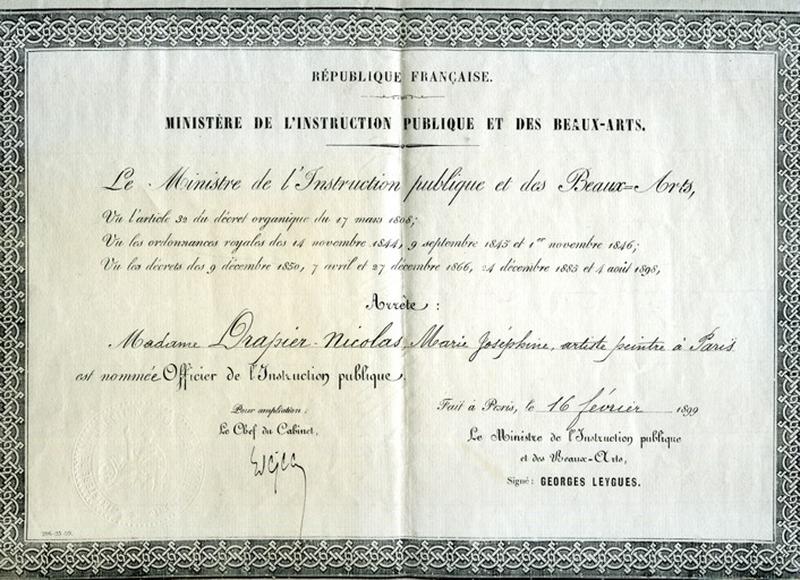 RÉPUBLIQUE FRANÇAISE.
MINISTÈRE DE L'INSTRUCTION PUBLIQUE ET DES BEAUX-ARTS.
Le Ministre de l'Instruction publique et des Beaux=Arts,
Vu l'article 32 du décret organique du 17 mars 1808;
Vu les ordonnances royales des 14 novembre 1844, 9 septembre 1845 et 1er novembre 1846;
Vu les décrets des 9 décembre 1850, 7 avril et 27 décembre 1866, 24 décembre 1885 et 4 août 1898,
Arrête :
Madame Drapier-Nicolas, Marie Joséphine, artiste peintre à Paris
est nommée Officier de l'Instruction publique.
Pour ampliation:
Le Chef du Cabinet,
Fait à Paris, le 16 février 1899
Le Ministre de l'Instruction publique
et des Beaux-Arts,
Signé: GEORGES LEYGUES.